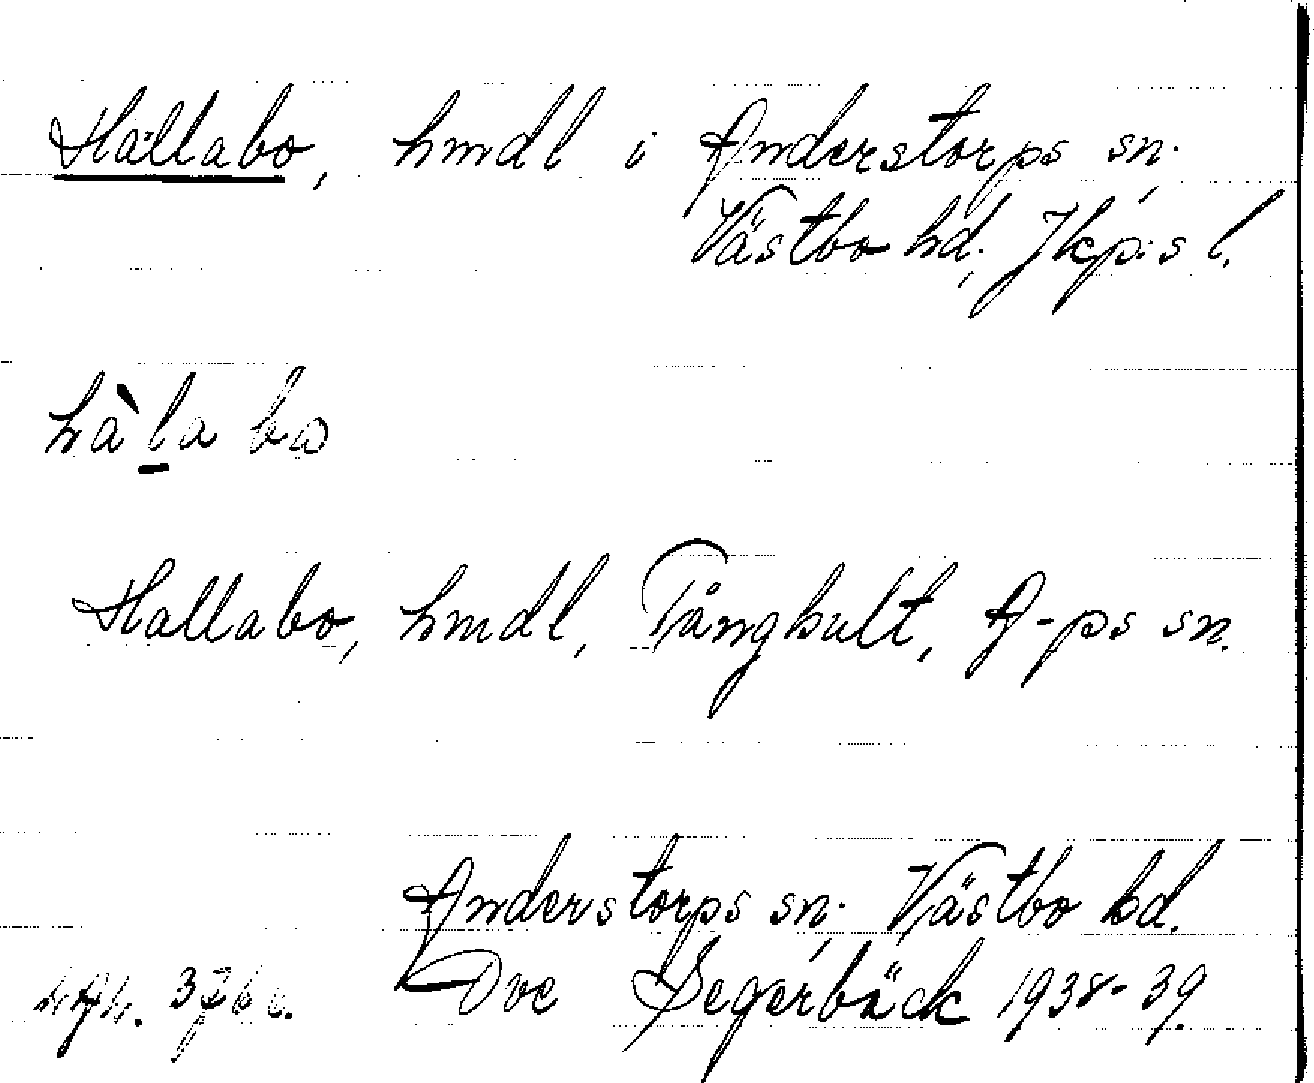 Hallabo, hmdl i Anderstorps sn;
Västbo hd; Jkp:s l.
hàla bo
Hallabo, hmdl, Tångbult, A-ps sn.
Anderstorps sn; Västbo hd.
Ove Segerbäck 1938-39.